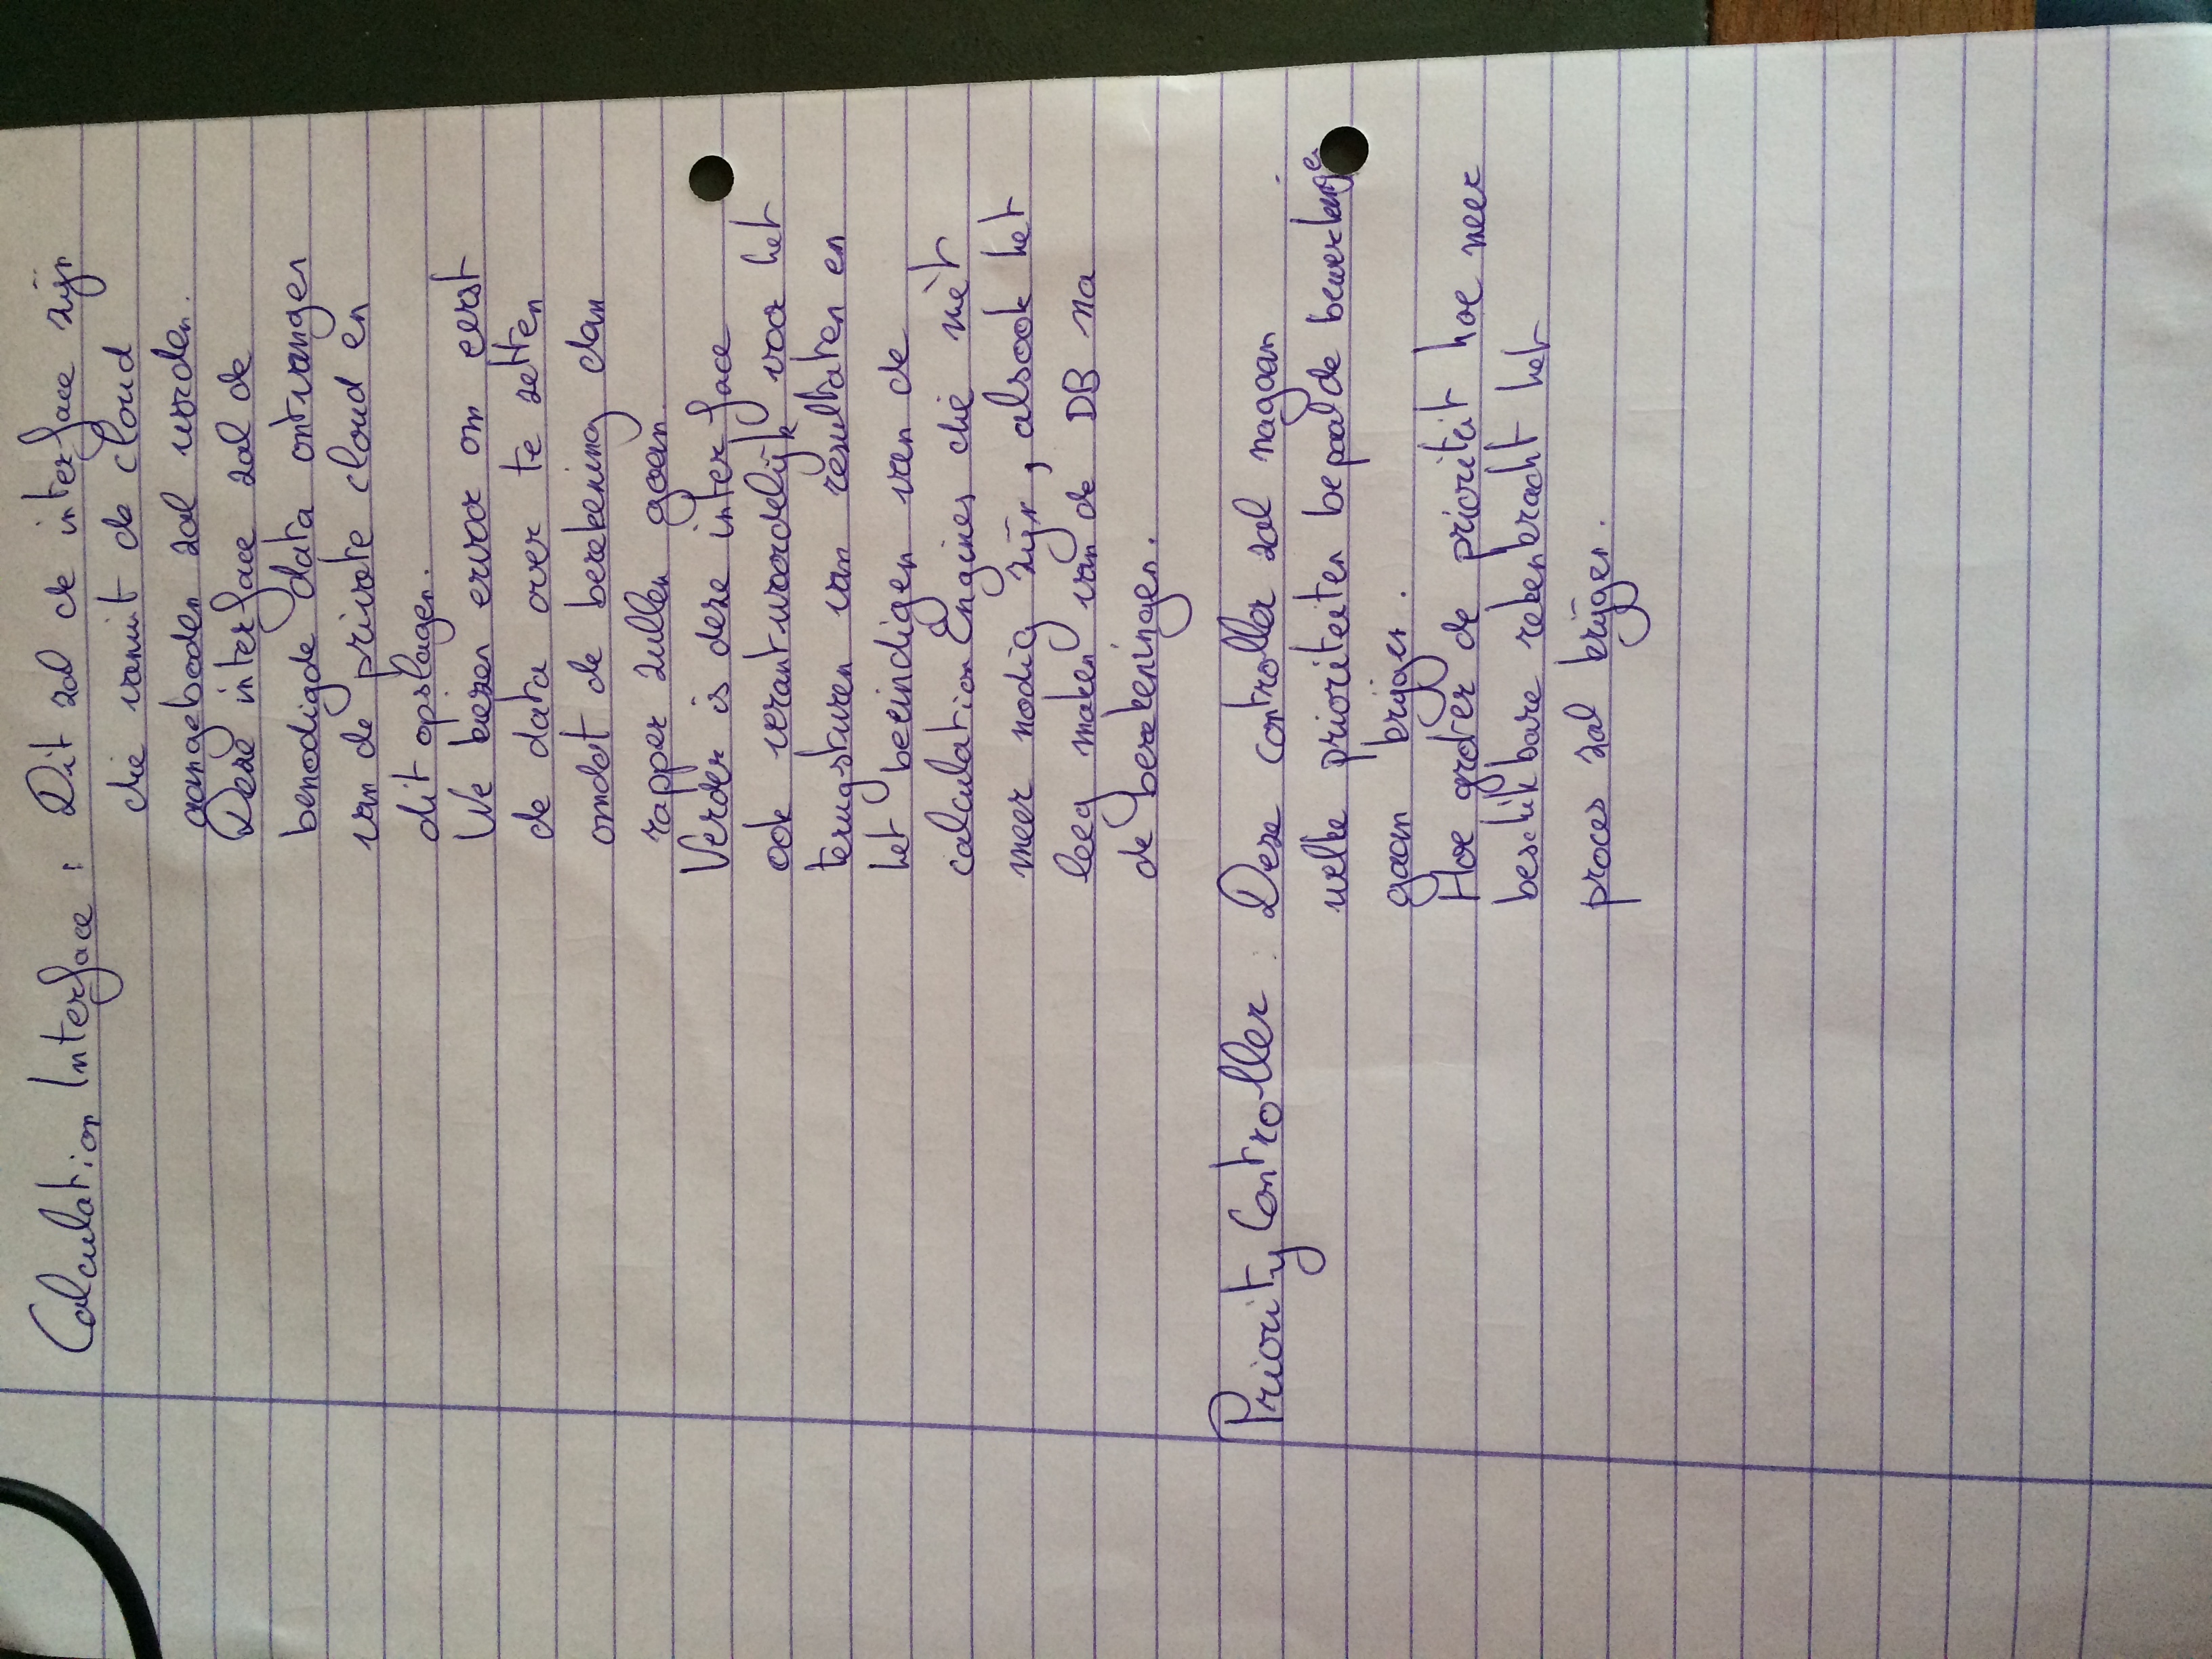 Calculation Interface : Dit zal de interface zijn
die vanuit de cloud
aangeboden zal worden.
Deze interface zal de
benodigde data ontvangen
van de private cloud en
dit opslagen.
We kiezen ervoor om eerst
de data over te zetten
omdat de berekening dan
rapper zullen gaan.
Verder is deze interface
ook verantwoordelijk voor het
terugsturen van resultaten en
het beëindigen van de
calculationEngines die niet
meer nodig zijn, alsook het
leeg maken van de DB na
de berekeningen.
Priority Controller : Deze controller zal nagaan
welke prioriteiten bepaalde bewerkingen
gaan krijgen.
Hoe groter de prioriteit hoe meer
beschikbare rekenkracht het
proces zal krijgen.